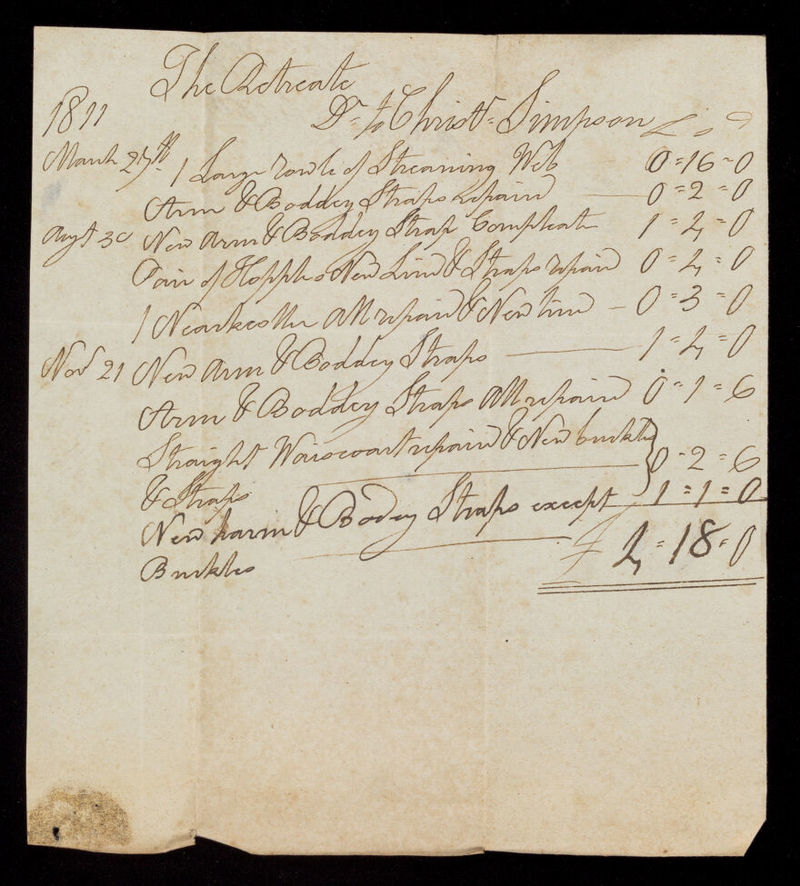 The Retreate
1811 Dr to Christr Simpson £ s d
March 27th 1 Large rowle of Streaning Web 0=16=0
Arm & Boddey Straps repaird 0=2=0
Augt 30 New Arm & Boddey Strap Compleat 1=4=0
Pair of Hopples New Lind & Straps repaird 0=4=0
1 Neackcoller All repaird & New lind 0=3=0
Novr 21 New Arm & Boddey Straps 1=4=0
Arm & Boddey Straps All repaird 0=1=6
Straight Waiscoart repaird & New buckles
& Straps } 0=2=6
New harm & Bodey Straps except 1=1=0
Buckles £ 4=18=0